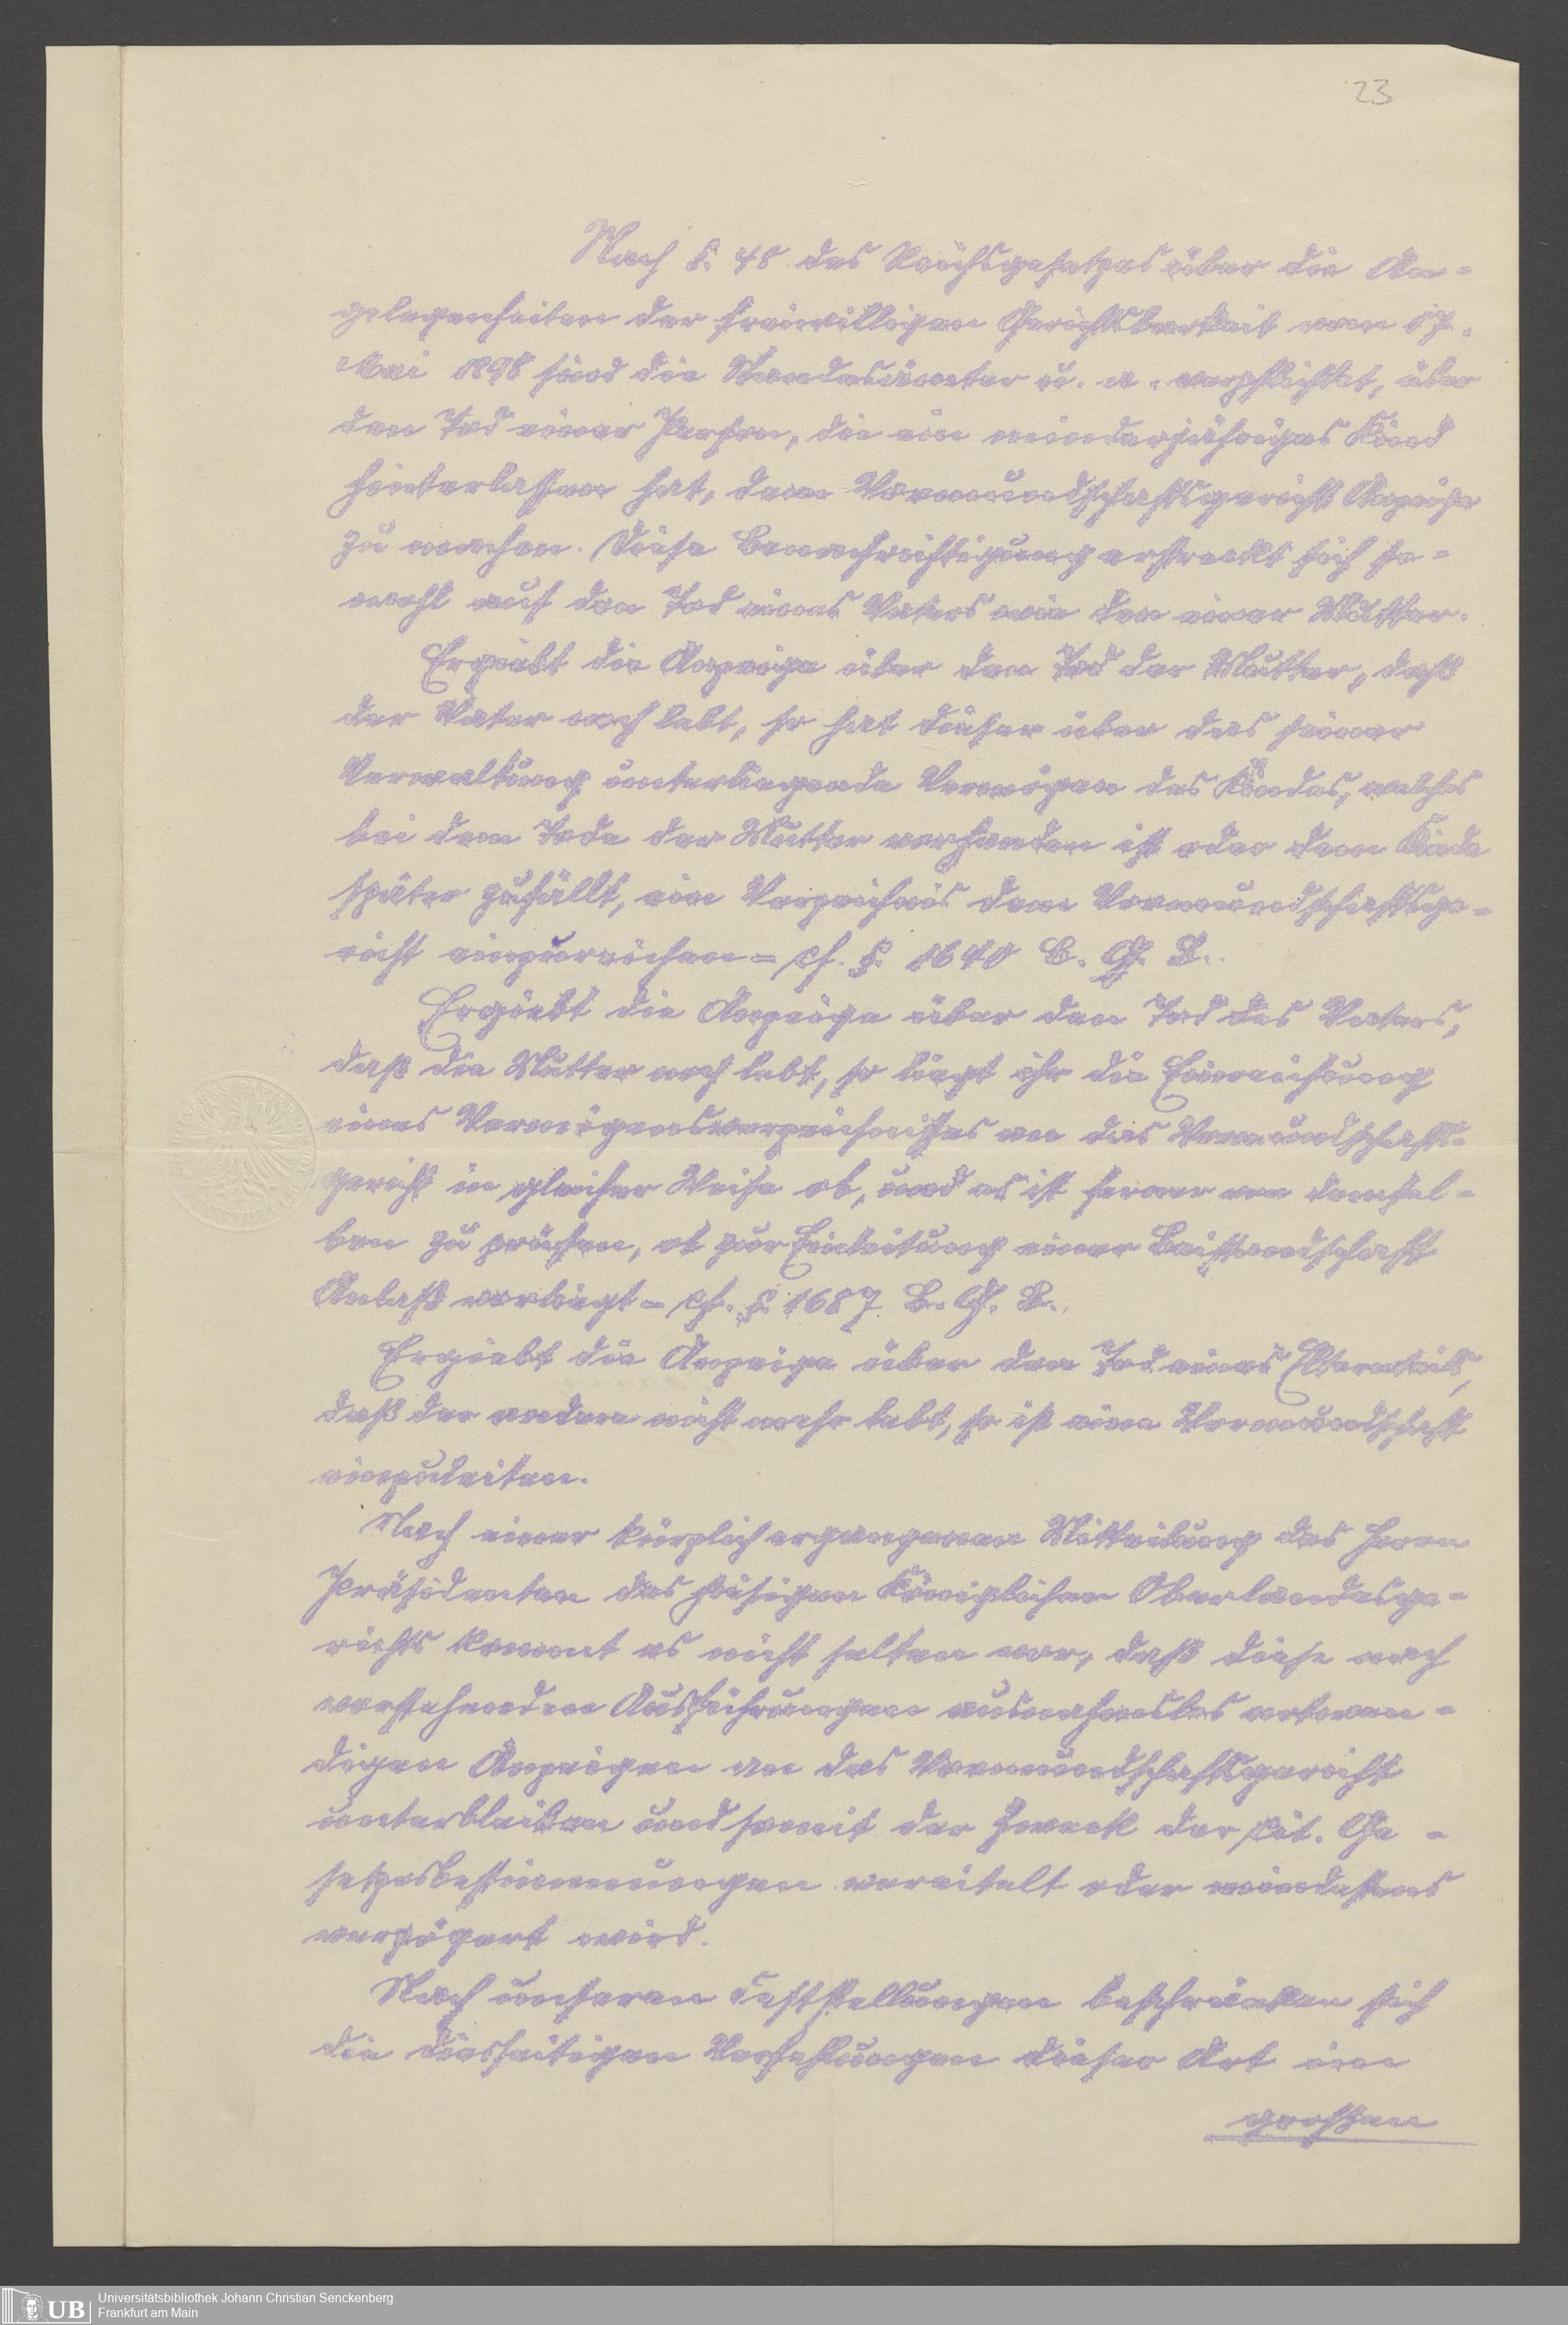 23
Nach §. 48 des Reichsgesetzes über die An-
gelegenheiten der freiwilligen Gerichtsbarkeit vom 17.
Mai 1898 sind die Standesämter u. a. verpflichtet, über
den Tod einer Person, die ein minderjähriges Kind
hinterlassen hat, dem Vormundschaftsgericht Anzeige
zu machen. Diese Benachrichtigung erstreckt sich so-
wohl auf den Tod eines Vaters wie den einer Mutter.
Ergiebt die Anzeige über den Tod der Mutter, daß
der Vater noch lebt, so hat dieser über das seiner
Verwaltung unterliegende Vermögen des Kindes, welches
bei dem Tode der Mutter vorhanden ist oder dem Kinde
später zufällt, ein Verzeichnis dem Vormundschaftsge-
richt einzureichen - cf. §. 1640 B. G. B..
Ergiebt die Anzeige über den Tod des Vaters,
daß die Mutter noch lebt, so liegt ihr die Einreichung
eines Vermögensverzeichnisses an das Vormundschafts-
gericht in gleicher Weise ob, und es ist ferner von demsel-
ben zu prüfen, ob zur Einleitung einer Beistandschaft
Anlaß vorliegt - cf. §. 1687 B. G. B..
Ergiebt die Anzeige über den Tod eines Elternteils,
daß der andere nicht mehr lebt, so ist eine Vormundschaft
einzuleiten.
Nach einer kürzlich ergangenen Mitteilung des Herrn
Präsidenten des hiesigen Königlichen Oberlandesge-
richts kommt es nicht selten vor, daß diese nach
vorstehenden Ausführungen ausnahmslos notwen-
digen Anzeigen an das Vormundschaftsgericht
unterbleiben und somit der Zweck der cit. Ge-
setzesbestimmungen vereitelt oder mindestens
verzögert wird.
Nach unseren Feststellungen beschränken sich
die diesseitigen Verfehlungen dieser Art im
grossen
UB
Universitätsbibliothek Johann Christian Senckenberg
Frankfurt am Main